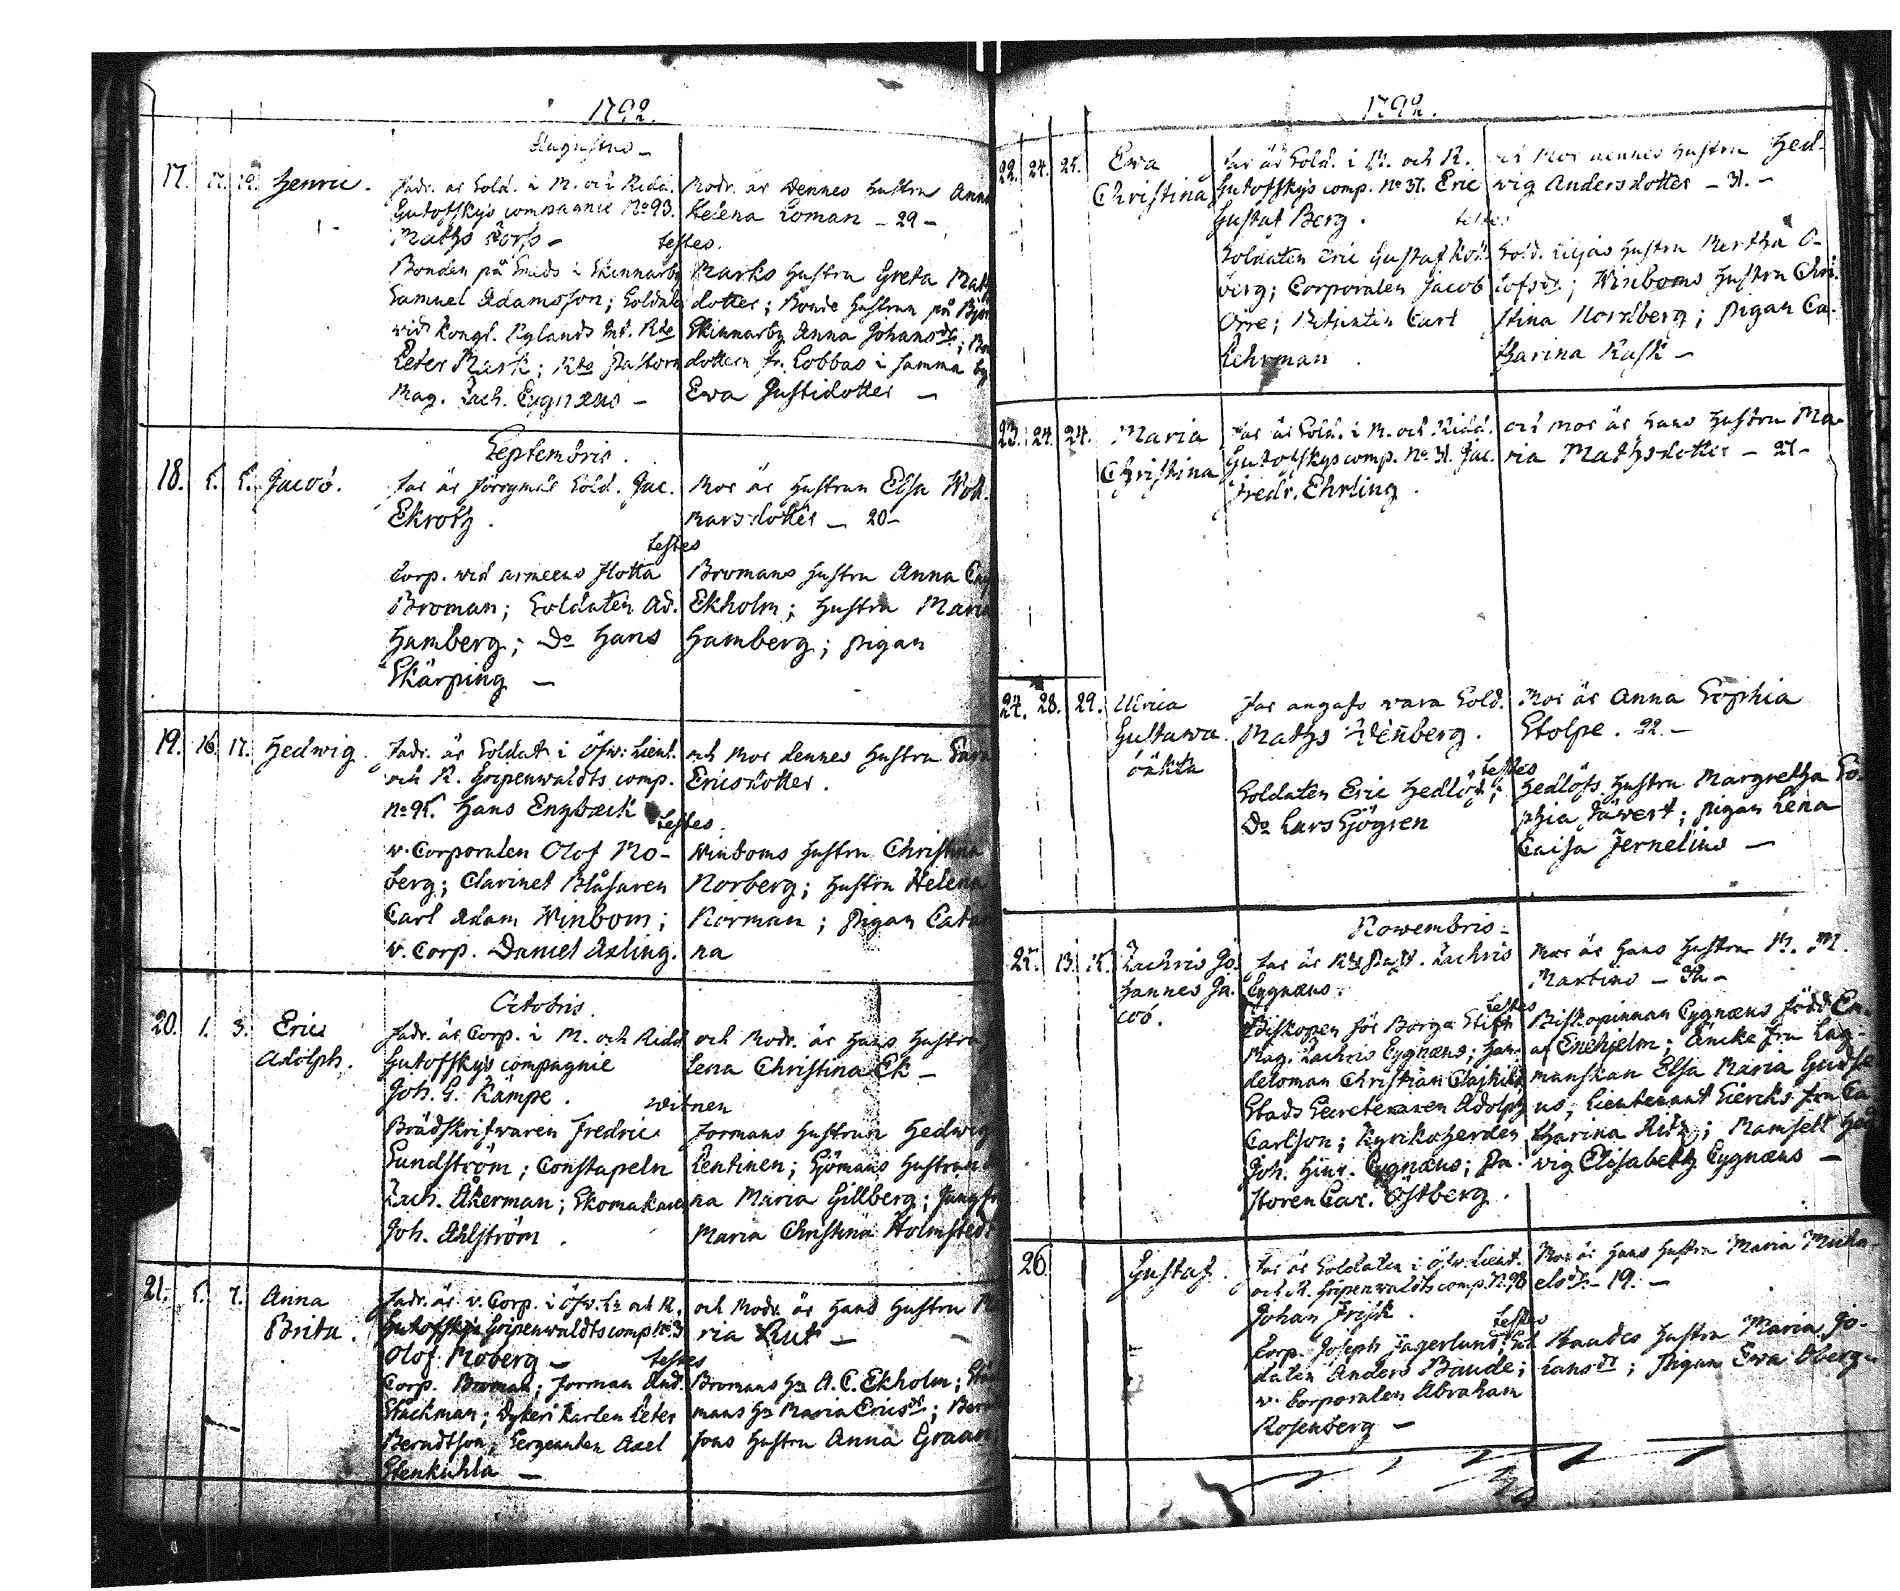 1792.
Augustus
17. 17. 19. Henric.
Fadr. är Sold. i M. och Ridd.
Gutofskys compagnie No 93.
Maths Fors –
Modr. är dennes hustru Anna
Helena Loman – 29 –
testes.
Bonden på Smeds i Skinnarby
Samuel Adamsson; Soldaten
vid Kongl. Nylands Inf. Rte
Peter Mark; Rts Pastorn
Mag. Zach. Cygnæus –
Marks hustru Greta Mats
dotter; Bonde hustrun på
Skinnarby Anna Johansdr;
dottern fr. Lobbas i samma by
Ewa Gustisdotter –
Septembris.
18. 5. 5. Jacob.
Far är förrymde Sold. Jac.
Ekroth.
Mor är hustrun Elsa Woll-
marsdotter – 20 –
testes
Corp. wid armeens flotta
Broman; Soldaten Ad.
Hamberg; Do Hans
Skärping –
Bromans hustru Anna
Ekholm; hustru Maria
Hamberg; pigan
19. 16. 17. Hedwig.
Fadr. är Soldat i Öfw: Lieut.
och R. Gripenwaldts comp.
no 95. Hans Engbæck
och Mor dennes hustru Sara
Ericsdotter.
testes.
v. Corporalen Olof Mo-
berg; Clarinet Blåsaren
Carl Adam Winbom;
v. Corp. Daniel Axling.
Winboms hustru Christina
Norberg; hustru Helena
Norman; pigan Cata
na
Octobris.
20. 1. 3. Eric
Adolph.
Fadr. är Corp. i M. och Ridd
Gutoffskys compagnie
Joh. G. Kämpe.
och Modr. är hans hustru
lena Christina Ek –
witnen
Brädskrifwaren Fredric
Sundström; Constapeln
Zach. Åkerman; Skomakare
Joh. Ahlström.
Formans hustrun Hedwig
Lentinen; Sjömans hustrun
na Maria Gillberg; Jungfr
Maria Christina Holmstedt
21. 5. 7. Anna
Brita.
Fadr. är v. Corp. i Öfw. Lt och R.
Gutoffskys Gripenwaldts comp No 3
Olof Moberg –
och Modr. är hans hustru M
ria Rut –
testes
Corp. Broman; Forman And.
Stackman; Dykeri karlen Peter
Berndtson; Sergeanten Axel
Stenkuhla –
Bromans hu A. C. Ekholm;
mans hu Maria Ericsdr;
sons hustru Anna Graan
1792.
22. 24. 25. Ewa
Christina
Far är Sold. i M. och R.
Gutofskys comp. No 31. Eric
Gustaf Berg.
och Mor dennes hustru Hed-
wig Andersdotter – 31. –
testes
Soldaten Eric Gustaf
berg; Corporalen Jacob
Orre; Carl
Lehrman
Sold. Liljas hustru Mertha O-
lofsdr; Winboms hustru Chri-
stina Nordberg; pigan Ca-
tharina Rask –
23. 24. 24. Maria
Christina
Far är Sold. i M. och Ridd.
Gutofskys comp. No 31. Jac.
Fredr. Ehrling.
och mor är hans hustru Ma-
ria Mathsdotter – 27 –
24. 28. 29. Ulrica
Gustawa.
oäkta
Far angafs vara Sold.
Maths Wenberg.
Mor är Anna Sophia
Stolpe. 22. –
testes
Soldaten Eric Hedlöf;
Do Lars Sjögren
Hedlöfs hustru Margretha So-
phia Täwert; pigan Lena
Caisa Jernelius –
Nowembris –
25. 13. 15. Zachris Jo-
hannes Ja-
cob.
Far är Rts Past. Zachris
Cygnæus.
Mor är hans hustru M. M.
Martino – 32 –
testes
Biskopen för Borgå Stift
Mag. Zachris Cygnæus; Han-
delsman Christian
Stads Secreteraren Adolph
Carlson; Kyrkoherden
Joh. Hinr. Cygnæus; Pa-
storen Car. Östberg.
Biskopinnan Cygnæus född En.
af Enehjelm; Encke fru Lag-
manskan Elsa Maria
us; Lieutenant Siercks fru Ca
tharina Ritz; Mamsell Hed
wig Elisabeth Cygnæus –
26. Gustaf.
Far är Soldaten i Öfw. Lieut.
och R. Gripenwaldts comp. N. 98
Johan Frisk.
Mor är hans hustru Maria Micha-
elsdr – 19. –
testes
Corp. Joseph Jägerlund; Sol-
daten Anders Baude;
v. Corporalen Abraham
Rosenberg –
Baudes hustru Maria Jo-
hansdr; pigan Ewa Öberg –